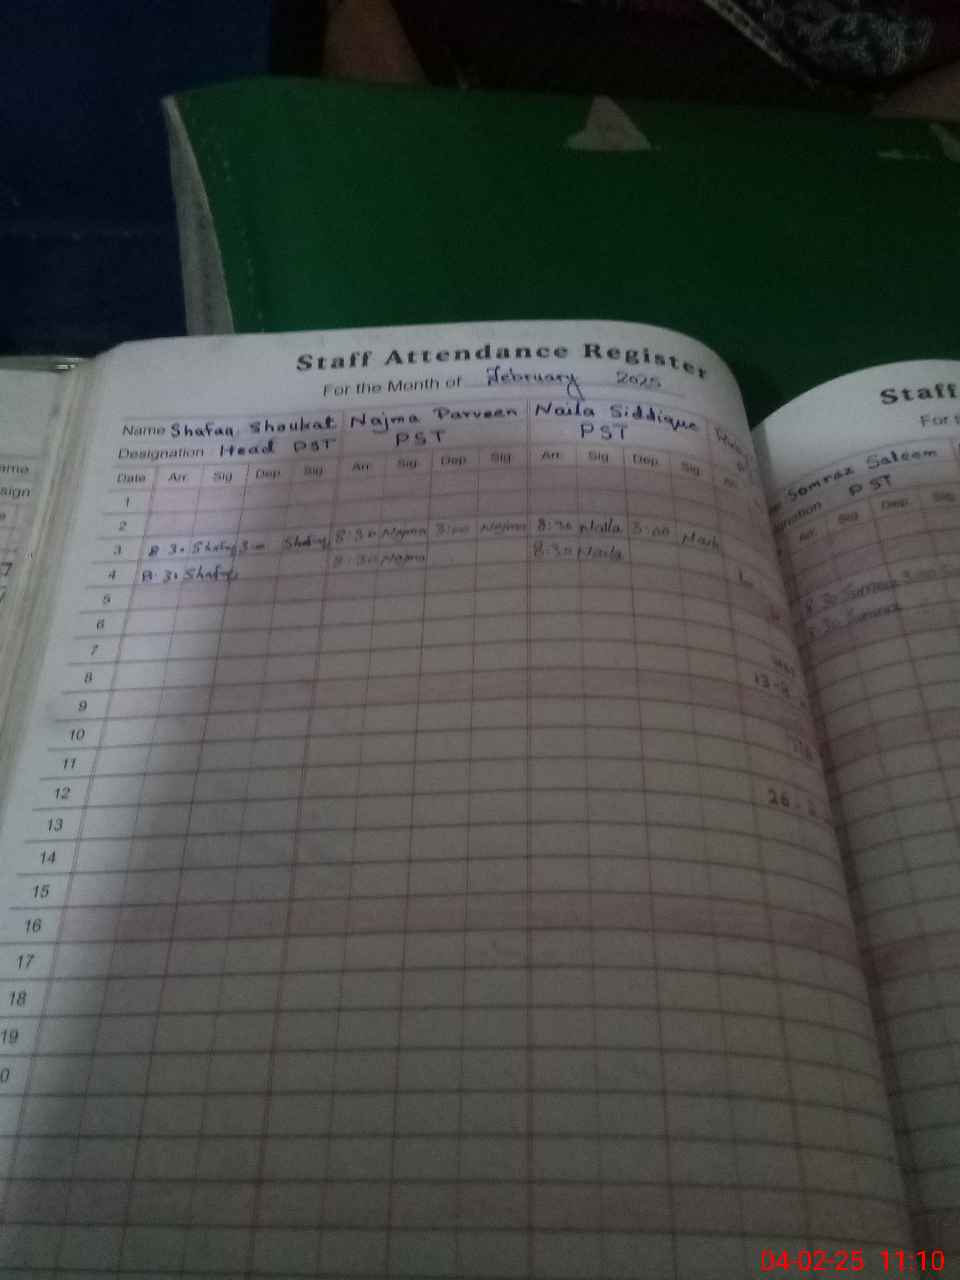 Staff Attendance Register
For the Month of February 2025
Name Shafaq Shoukat Najma Parveen Naila Siddique
Designation Head PST PST PST
Date Arr. Sig Dep. Sig Arr. Sig Dep. Sig Arr. Sig Dep. Sig
1
2
3 8:30 Shafaq 3:00 Shafaq 8:30 Najma 3:00 Najma 8:30 Naila 3:00 Naila
4 8:30 Shafaq 8:30 Najma 8:30 Naila
5
6
7
8
9
10
11
12
13
14
15
16
17
18
19
0
26
Staff
For t
Somraz Saleem
nation PST
Arr. Sig Dep. Sig
8:30
8:30
ame
sign
7
04-02-25 11:10